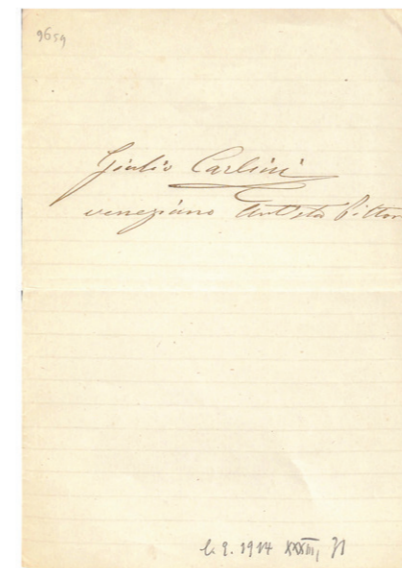 9659
Giulio Carlini
veneziano Artista Pittor
1914 XXXIII, 71